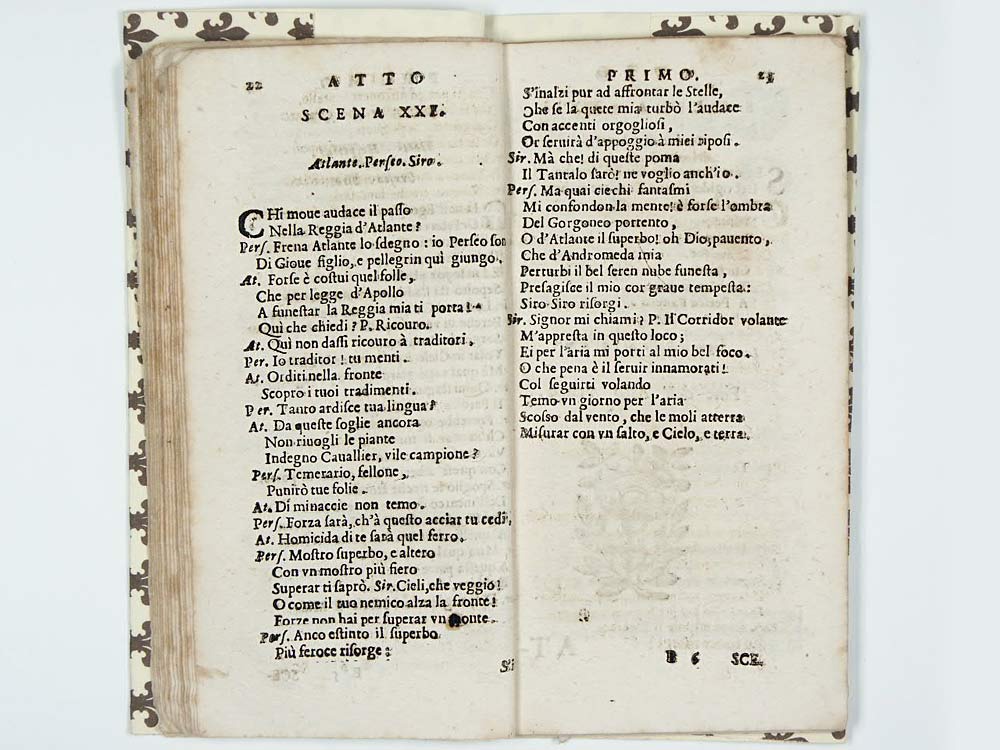 22 ATTO
SCENA XXI.
Atlante. Perseo. Siro.
CHi moue audace il passo
Nella Reggia d'Atlante?
Pers. Frena Atlante lo sdegno: io Perseo son
Di Gioue figlio, e pellegrin quì giungo.
At. Forse è costui quel folle,
Che per legge d'Apollo
A funestar la Reggia mia ti porta!
Quì che chiedi? P. Ricouro.
At. Quì non dassi ricouro à traditori.
Per. Io traditor! tu menti.
At. Orditi nella fronte
Scopro i tuoi tradimenti.
Per. Tanto ardisce tua lingua?
At. Da queste soglie ancora
Non riuogli le piante
Indegno Cauallier, vile campione?
Pers. Temerario, fellone,
Punirò tue folie.
At. Di minaccie non temo.
Pers. Forza sarà, ch'à questo acciar tu cedi,
At. Homicida di te sarà quel ferro.
Pers. Mostro superbo, e altero
Con vn mostro più fiero
Superar ti saprò. Sir. Cieli, che veggio!
O come il tuo nemico alza la fronte!
Forze non hai per superar vn monte.
Pers. Anco estinto il superbo
Più feroce risorge:
S'i
PRIMO. 23
S'inalzi pur ad affrontar le Stelle,
Che se la quete mia turbò l'audace
Con accenti orgogliosi,
Or seruirà d'appoggio à miei riposi.
Sir. Mà che! di queste poma
Il Tantalo sarò! ne voglio anch'io.
Pers. Ma quai ciechi fantasmi
Mi confondon la mente! è forse l'ombra
Del Gorgoneo portento,
O d'Atlante il superbo! oh Dio, pauento,
Che d'Andromeda mia
Perturbi il bel seren nube funesta,
Presagisce il mio cor graue tempesta:
Siro Siro risorgi.
Sir. Signor mi chiami? P. Il Corridor volante
M'appresta in questo loco;
Ei per l'aria mi porti al mio bel foco.
O che pena è il seruir innamorati!
Col seguirti volando
Temo vn giorno per l'aria
Scosso dal vento, che le moli atterra
Misurar con vn salto, e Cielo, e terra.
B 6 SCE.